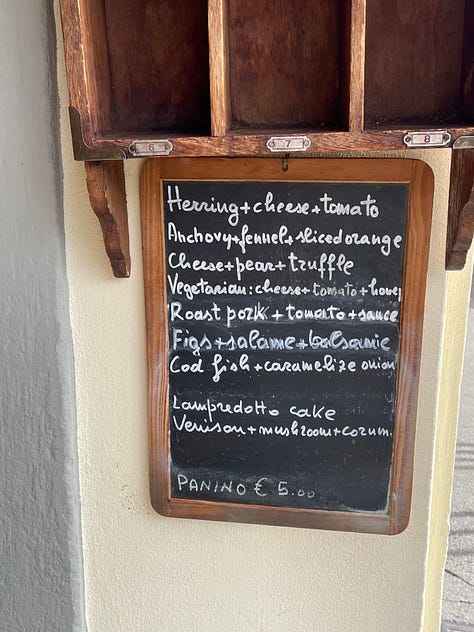 6 7 8
Herring+cheese+tomato
Anchovy+fennel+sliced orange
Cheese+pear+truffle
Vegetarian: cheese+tomato+honey
Roast pork+tomato+sauce
Figs+salame+balsamic
Cod fish+caramelize onion
Lampredotto cake
Venison+mushroom+
PANINO € 5.00